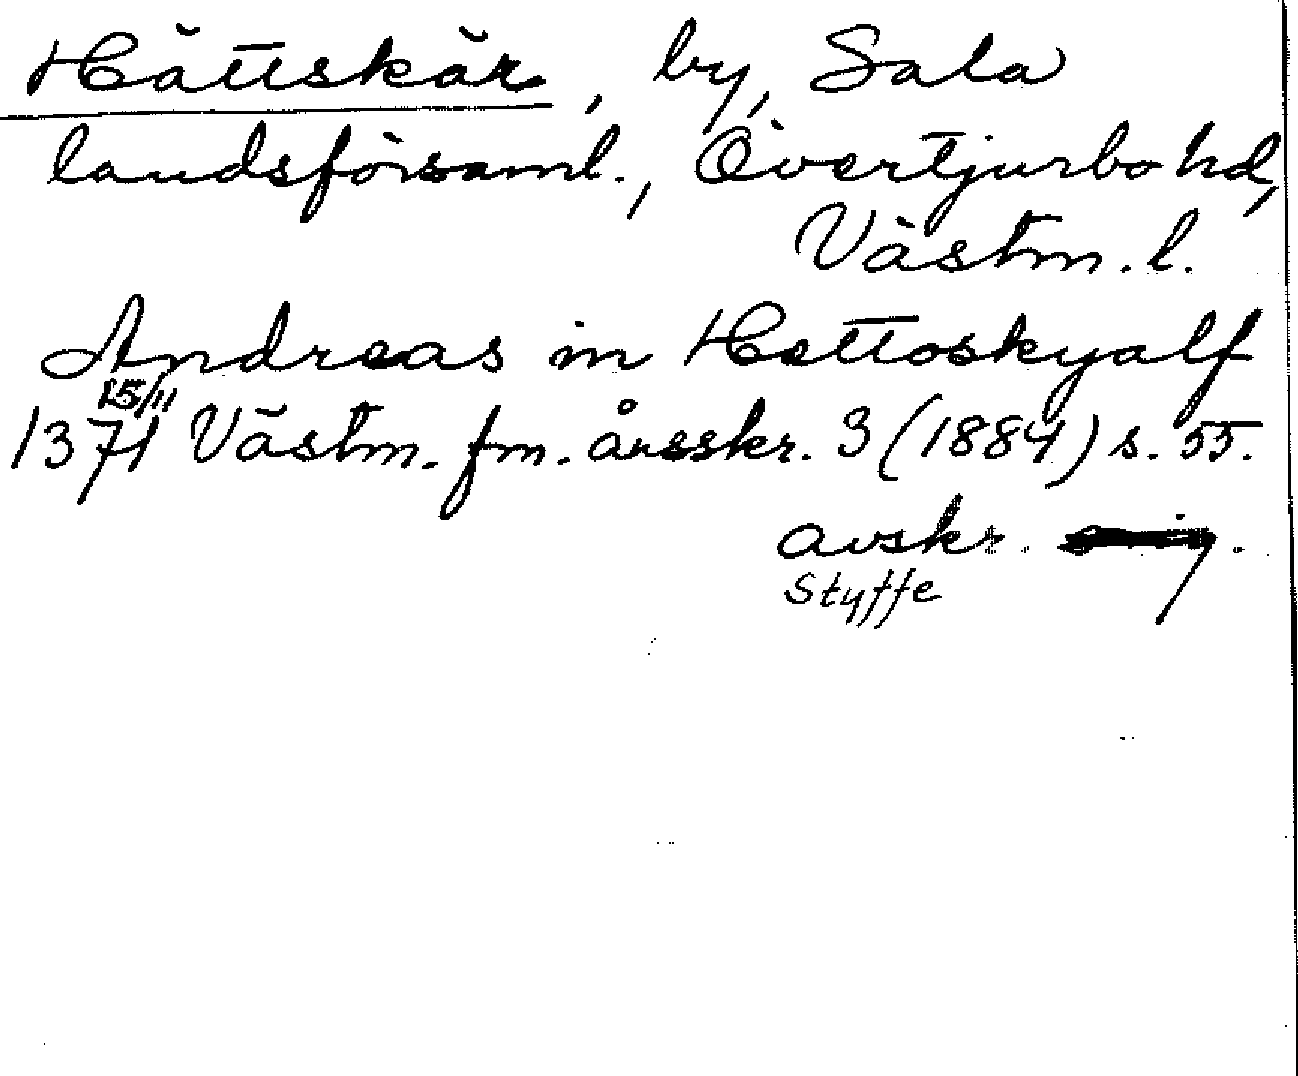 Hättskär, by, Sala
landsförsaml., Övertjurbo hd,
Västm. l.
Andreas in Hettoskyalf
15/11
1371 Västm. fm. årsskr. 3 (1884) s. 55.
avskr.
Styffe